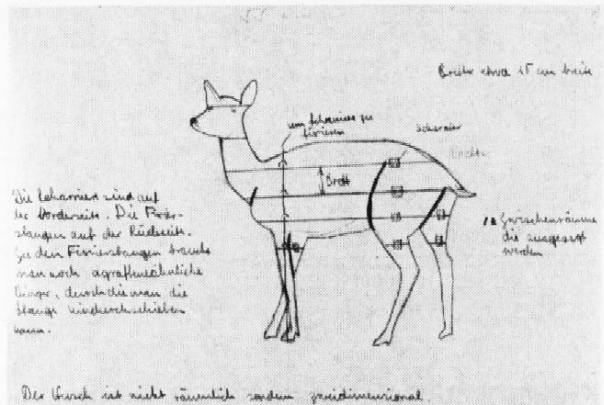 Bretter etwa 15 cm breit
um Scharnier zu
fixieren
Scharnier
Brett
Brett
Die Scharniere sind auf
der Vorderseite. Die Fixier-
stangen auf der Rückseite.
Zu den Fixierstangen braucht
man noch agraffenähnliche
Dinger, durch die man die
Stange hindurchschieben
kann.
Zwischenräume
die ausgesägt
werden
Der Hirsch ist nicht räumlich sondern zweidimensional.